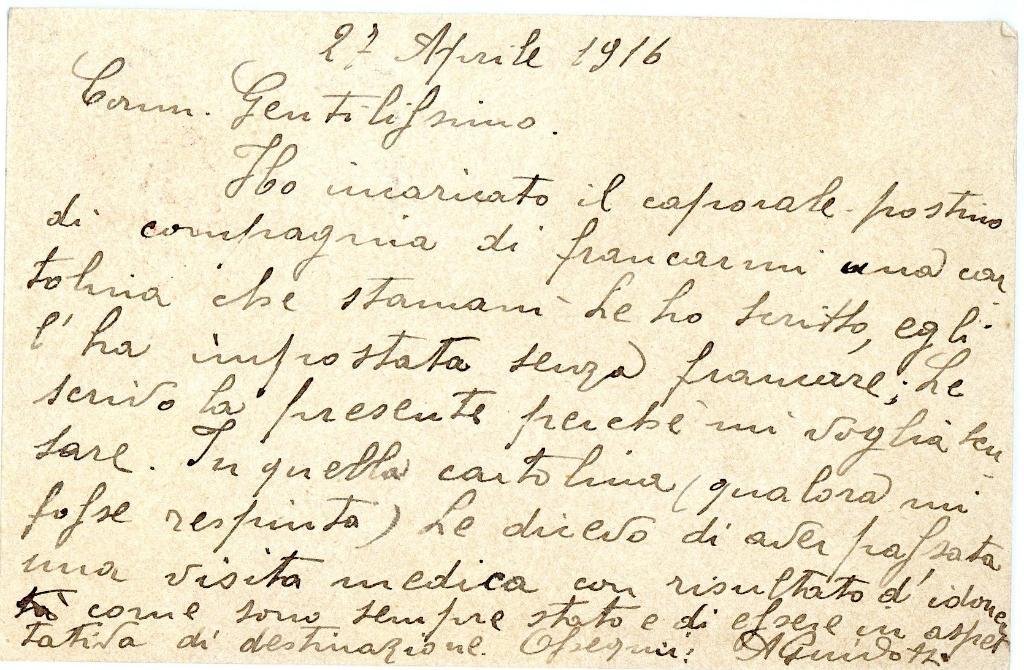 27 Aprile 1916
Comm. Gentilissimo.
Ho incaricato il caporale postino
di compagnia di francarmi una car
tolina che stamani Le ho scritto, egli
l'ha impostata senza francare; Le
scrivo la presente perchè mi voglia scu
sare. In quella cartolina (qualora mi
fosse respinta) Le dicevo di aver passata
una visita medica con risultato d'idonei
tà come sono sempre stato e di essere in aspet
tativa di destinazione. Ossequi: AGuidotti